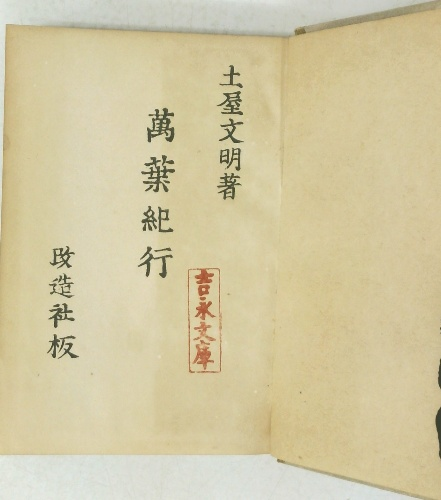 土屋文明著
萬葉紀行
改造社板
吉永文庫